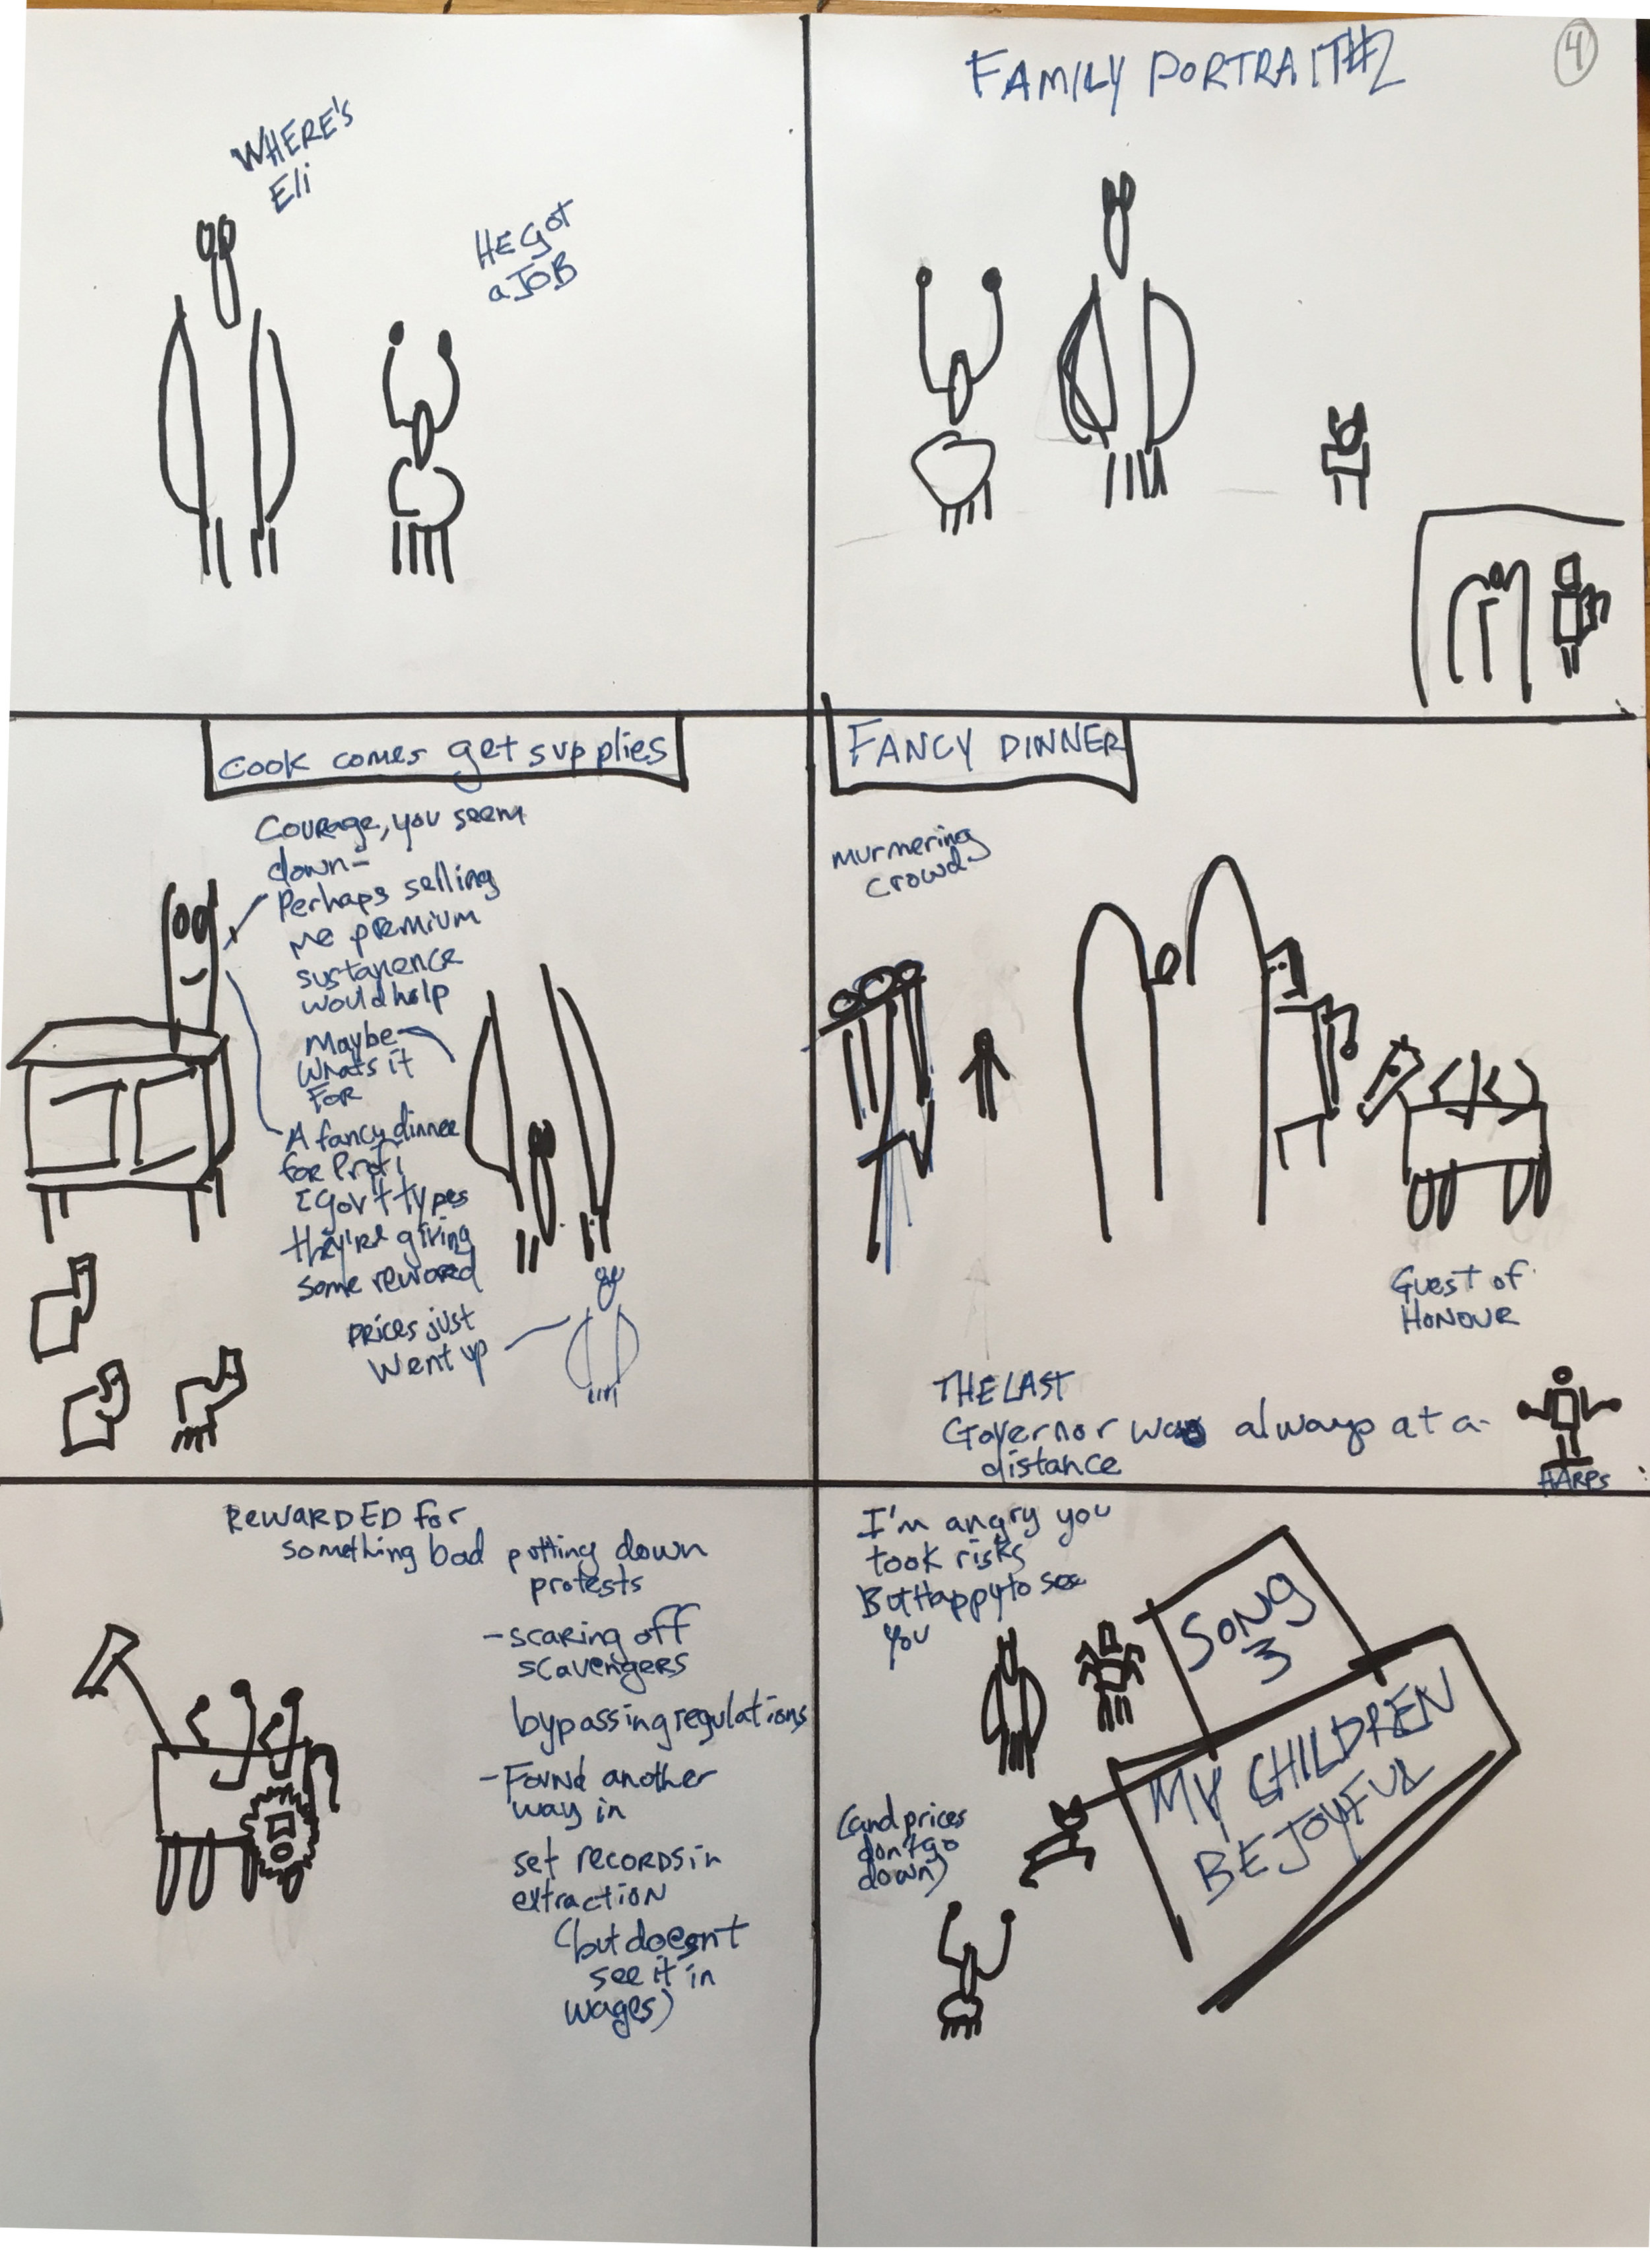 WHERE'S
Eli
HE got
a JOB
FAMILY PORTRAIT#2
4
cook comes get supplies
Courage, you seem
down-
Perhaps selling
me premium
sustanence
would help
Maybe
Whats it
FOR
A fancy dinner
for Profi
& Gov't types
they're giving
some reward
prices just
went up
FANCY DINNER
murmering
crowd
Guest of
HONOUR
THE LAST
Governor was always at a
distance
HARPS
REWARDED for
something bad putting down
protests
-scaring off
scavengers
bypassing regulations
-Found another
way in
set records in
extraction
(but doesnt
see it in
wages)
I'm angry you
took risks
But Happy to see
you
SONG
3
MY CHILDREN
BE JOYFUL
(and prices
don't go
down)